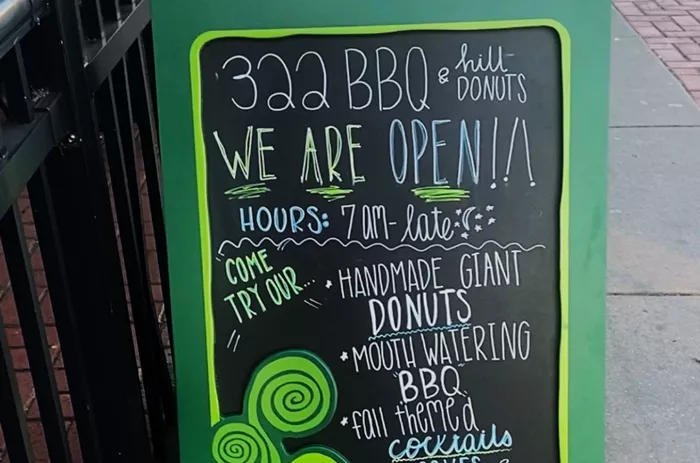 322 BBQ & hill DONUTS
WE ARE OPEN!!!
HOURS: 7AM-late
COME TRY OUR...
*HANDMADE GIANT
DONUTS
*MOUTH WATERING
"BBQ"
*fall themed
cocktails